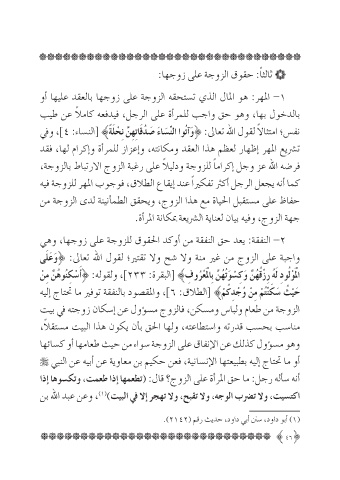 ثالثاً: حقوق الزوجة على زوجها:
١- المهر: هو المال الذي تستحقه الزوجة على زوجها بالعقد عليها أو
بالدخول بها، وهو حق واجب للمرأة على الرجل، فيدفعه كاملاً عن طيب
نفس؛ امتثالاً لقول الله تعالى: ﴿وَآتُوا النِّسَاءَ صَدُقَاتِهِنَّ نِحْلَةً﴾ [النساء: ٤]، وفي
تشريع المهر إظهار لعظم هذا العقد ومكانته، وإعزاز للمرأة وإكرام لها، فقد
فرضه الله عز وجل إكراماً للزوجة ودليلاً على رغبة الزوج الارتباط بالزوجة،
كما أنه يجعل الرجل أكثر تفكيراً عند إيقاع الطلاق، فوجوب المهر للزوجة فيه
حفاظ على مستقبل الحياة مع هذا الزوج، ويحقق الطمأنينة لدى الزوجة من
جهة الزوج، وفيه بيان لعناية الشريعة بمكانة المرأة.
٢- النفقة: يعد حق النفقة من أوكد الحقوق للزوجة على زوجها، وهي
واجبة على الزوج من غير منة ولا شح ولا تقتير؛ لقول الله تعالى: ﴿وَعَلَى
الْمَوْلُودِ لَهُ رِزْقُهُنَّ وَكِسْوَتُهُنَّ بِالْمَعْرُوفِ﴾ [البقرة: ٢٣٣]، ولقوله: ﴿أَسْكِنُوهُنَّ مِنْ
حَيْثُ سَكَنْتُمْ مِنْ وُجْدِكُمْ﴾ [الطلاق: ٦]، والمقصود بالنفقة توفير ما تحتاج إليه
الزوجة من طعام ولباس ومسكن، فالزوج مسؤول عن إسكان زوجته في بيت
مناسب بحسب قدرته واستطاعته، ولها الحق بأن يكون هذا البيت مستقلاً،
وهو مسؤول كذلك عن الإنفاق على الزوجة سواء من حيث طعامها أو كسائها
أو ما تحتاج إليه بطبيعتها الإنسانية، فعن حكيم بن معاوية عن أبيه عن النبي ﷺ
أنه سأله رجل: ما حق المرأة على الزوج؟ قال: (تطعمها إذا طعمت، وتكسوها إذا
اكتسيت، ولا تضرب الوجه، ولا تقبح، ولا تهجر إلا في البيت)(١)، وعن عبد الله بن
(١) أبو داود، سنن أبي داود، حديث رقم (٢١٤٢).
﴿٤٦﴾